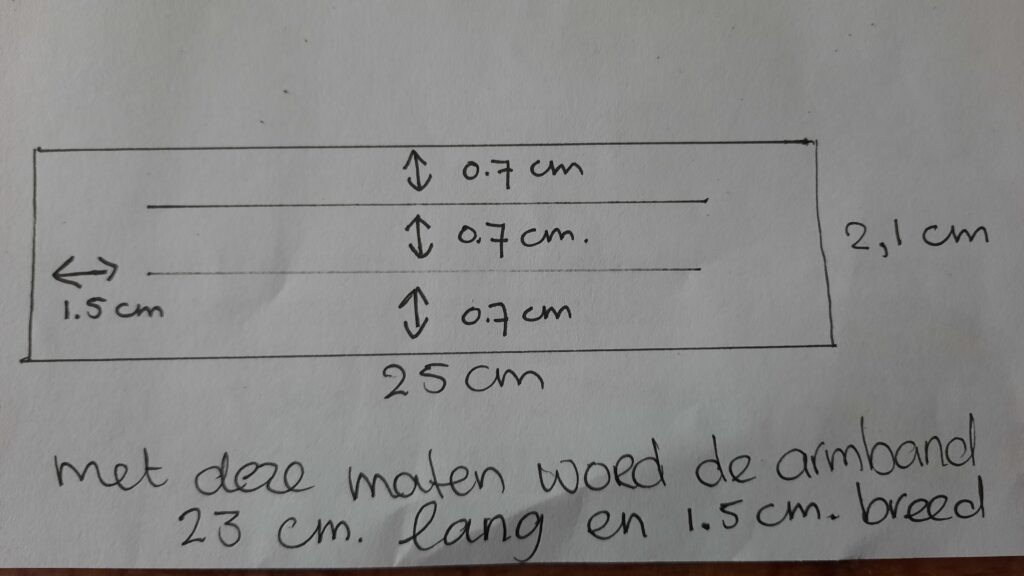 0.7 cm
0.7 cm.
2,1 cm
1.5 cm
0.7 cm
25 cm
met deze maten woed de armband
23 cm. lang en 1.5 cm. breed